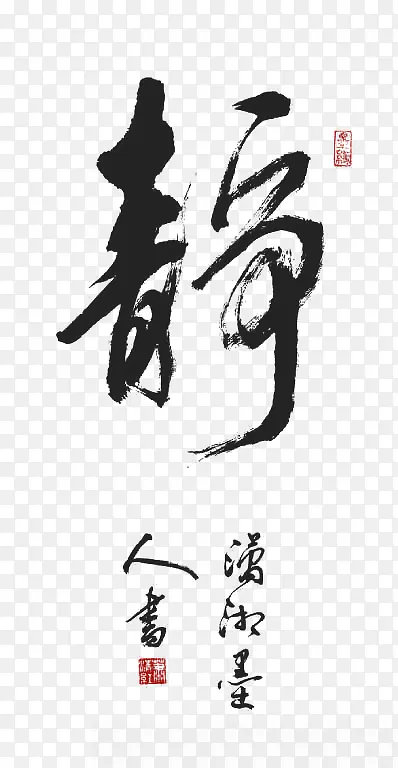 静
潇湘墨
人书